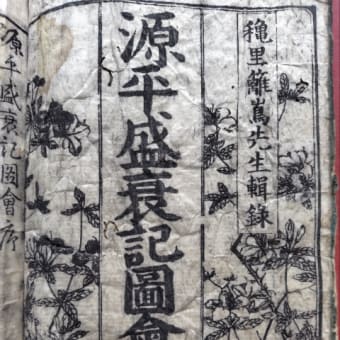 穐里籬嶌先生輯録
源平盛衰記圖會
源平盛衰記圖會序